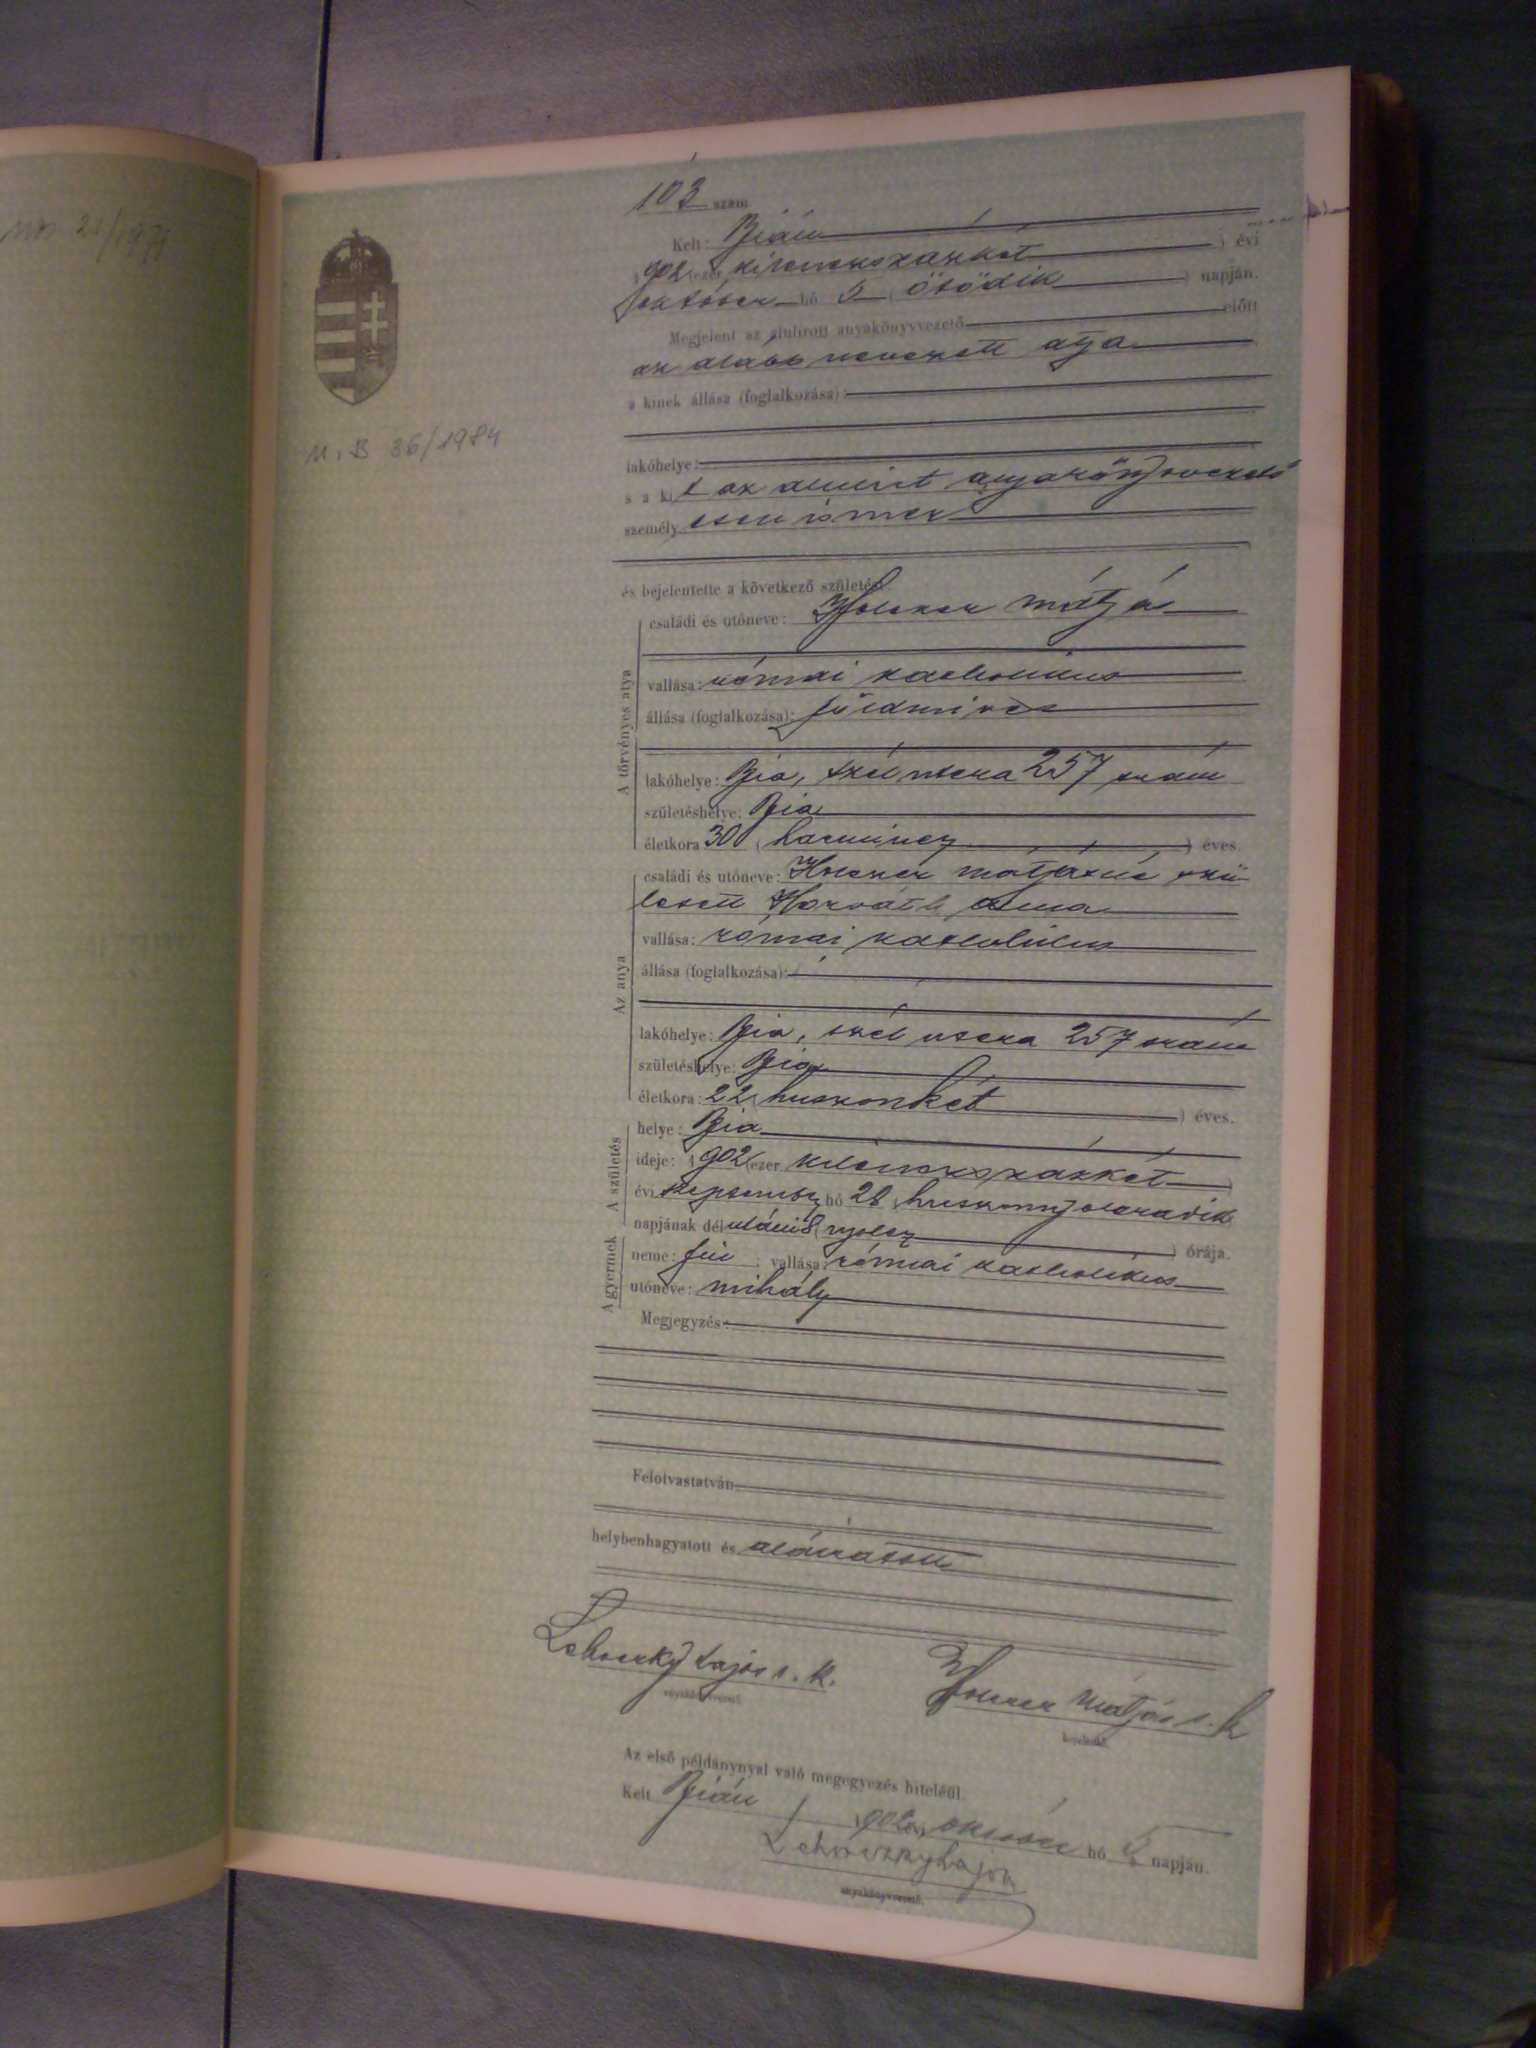 21/1971
M. B 36/1984
103 szám
Kelt: Bián
1902 (ezer kilenczszázkét ) évi
október hó 5 (ötödik ) napján.
Megjelent az alulirott anyakönyvvezető előtt
az alább nevezett atya
a kinek állása (foglalkozása):
lakóhelye:
s a kit az alulirt anyakönyvvezető
személyesen ismer
és bejelentette a következő születést:
A törvényes atya
családi és utóneve: Holczer Mátyás
vallása: római katholikus
állása (foglalkozása): földmives
lakóhelye: Bia, szél utcza 257 szám
születéshelye: Bia
életkora 30 (harmincz ) éves.
Az anya
családi és utóneve: Holczer Mátyásné szü-
letett Horváth Anna
vallása: római katholikus
állása (foglalkozása):
lakóhelye: Bia, szél utcza 257 szám
születéshelye: Bia
életkora: 22 (huszonkét ) éves.
A születés
helye: Bia
ideje: 1902 (ezer kilenczszázkét )
évi szeptember hó 28 (huszonnyolczadik
napjának délutáni 8 (nyolcz ) órája.
A gyermek
neme: fiú ; vallása: római katholikus
utóneve: Mihály
Megjegyzés:
Felolvastatván
helybenhagyatott és aláiratott
Lehoczky Lajos s. k.
anyakönyvvezető.
Holczer Mátyás s. k
bejelentő.
Az első példánynyal való megegyezés hiteléül.
Kelt Bián 1902 évi október hó 5 napján.
Lehoczky Lajos
anyakönyvvezető.